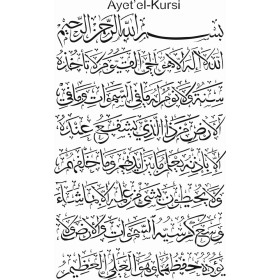 Ayet'el-Kursi
بسم الله الرحمن الرحيم
الله لا اله الا هو الحي القيوم لا تأخذه
سنة ولا نوم له ما في السموات وما في
الارض من ذا الذي يشفع عنده
الا باذنه يعلم ما بين ايديهم وما خلفهم
ولا يحيطون بشيء من علمه الا بما شاء
وسع كرسيه السموات والارض ولا
يؤده حفظهما وهو العلي العظيم